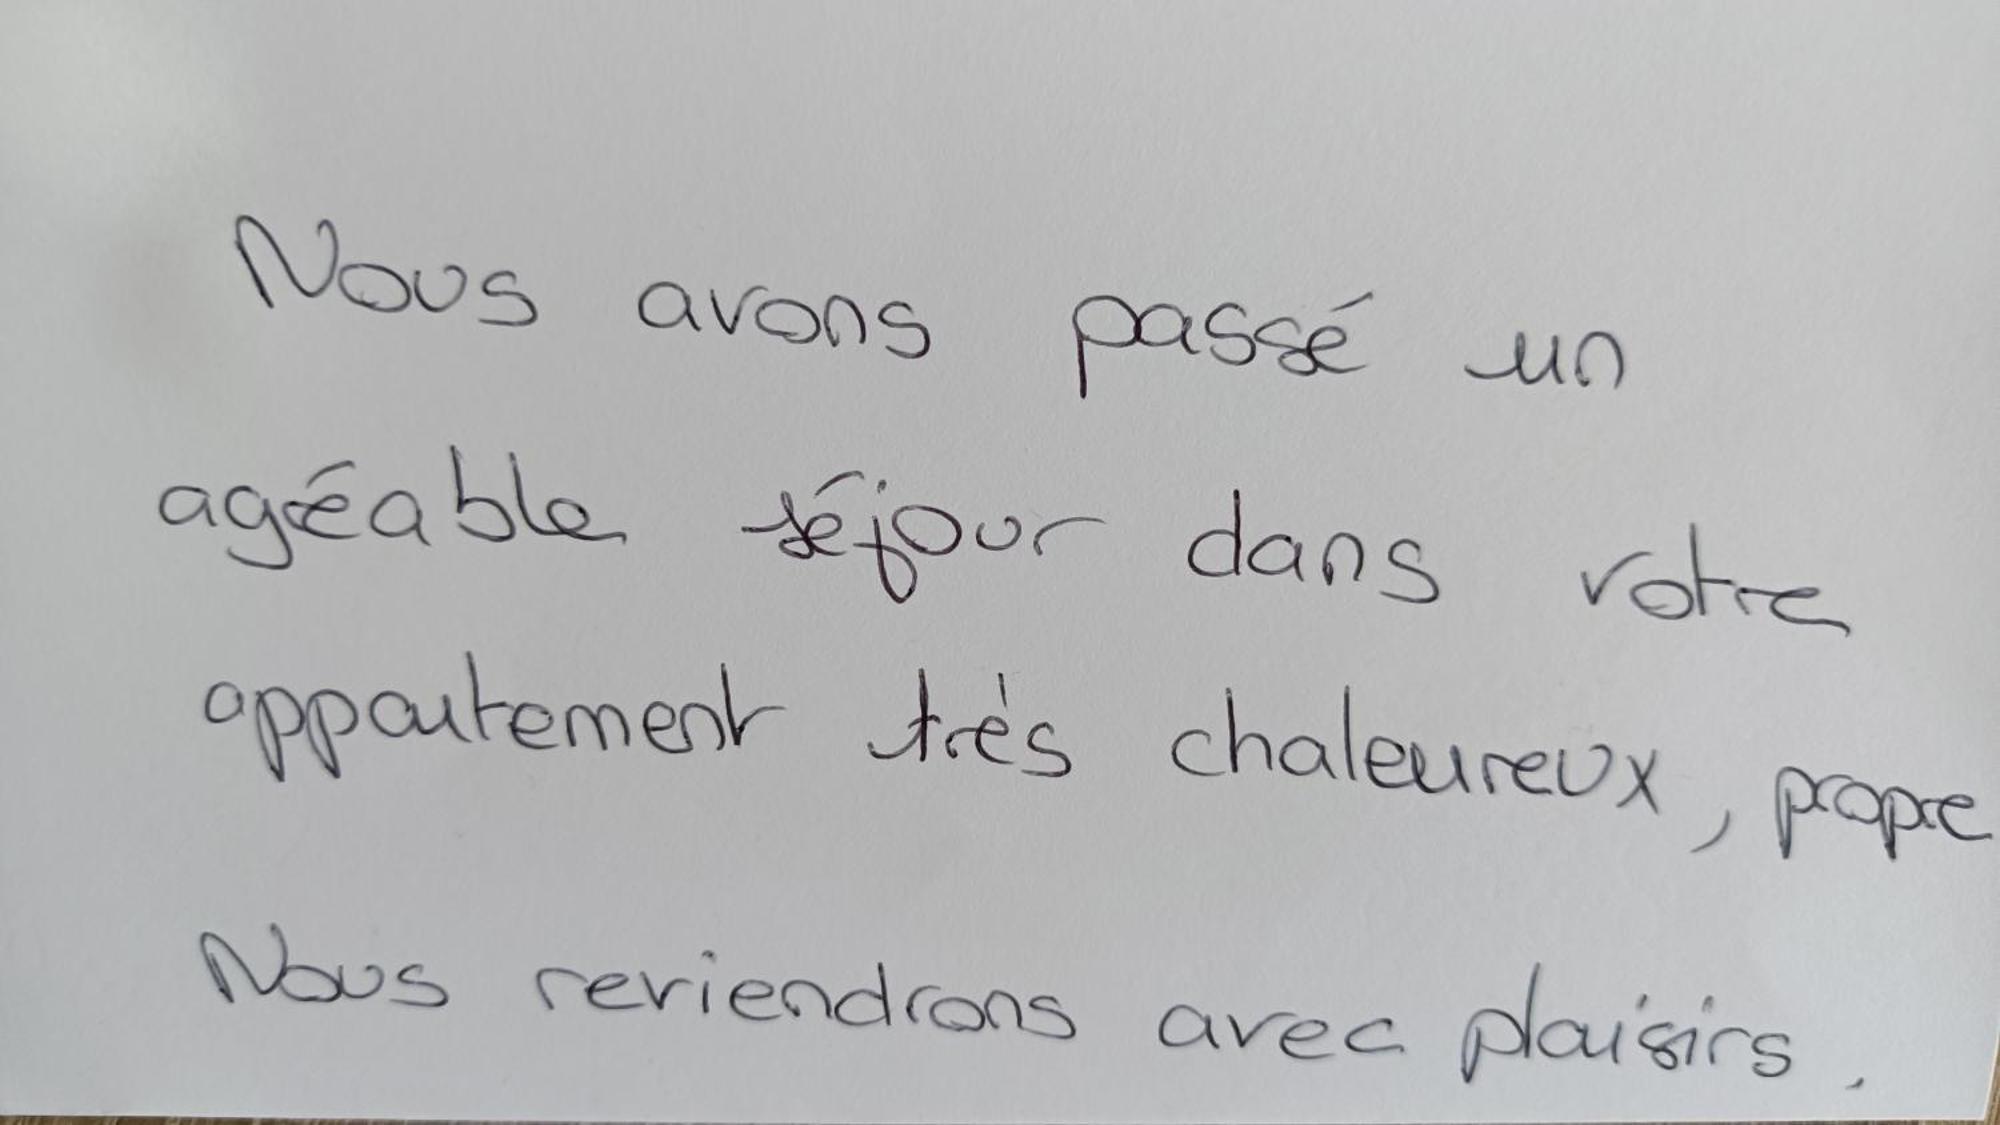 Nous avons passé un
agréable séjour dans votre
appartement très chaleureux, propre
Nous reviendrons avec plaisirs.